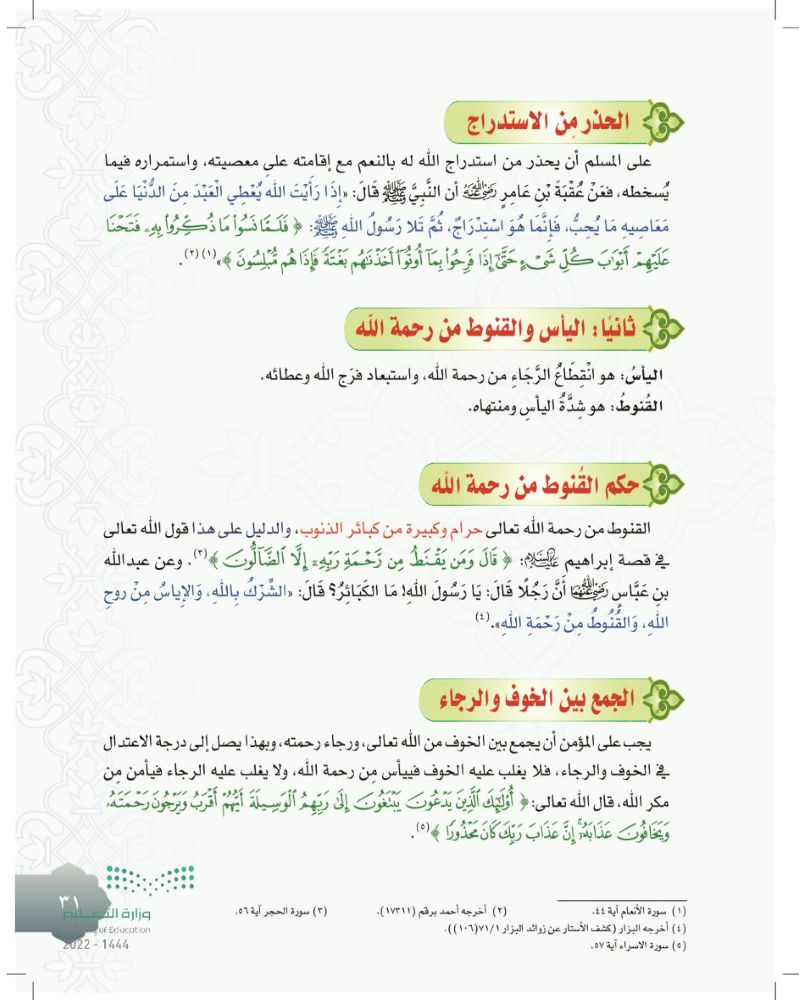 الحذر مِن الاستدراج
على المسلم أن يحذر من استدراج الله له بالنعم مع إقامته على معصيته، واستمراره فيما
يُسخطه، فعَنْ عُقْبَةَ بْنِ عَامِرٍ رضي الله عنه أن النَّبِيَّ ﷺ قَالَ: «إِذَا رَأَيْتَ اللهَ يُعْطِي الْعَبْدَ مِنَ الدُّنْيَا عَلَى
مَعَاصِيهِ مَا يُحِبُّ، فَإِنَّمَا هُوَ اسْتِدْرَاجٌ، ثُمَّ تَلا رَسُولُ اللهِ ﷺ: ﴿ فَلَمَّا نَسُوا۟ مَا ذُكِّرُوا۟ بِهِۦ فَتَحْنَا
عَلَيْهِمْ أَبْوَٰبَ كُلِّ شَىْءٍ حَتَّىٰٓ إِذَا فَرِحُوا۟ بِمَآ أُوتُوٓا۟ أَخَذْنَٰهُم بَغْتَةً فَإِذَا هُم مُّبْلِسُونَ ﴾»(١)(٢).
ثانيًا: اليأس والقنوط من رحمة الله
اليأسُ: هو انْقِطَاعُ الرَّجَاءِ من رحمة الله، واستبعاد فرَج الله وعطائه.
القُنوطُ: هو شِدَّةُ اليأسِ ومنتهاه.
حكم القُنوط من رحمة الله
القنوط من رحمة الله تعالى حرام وكبيرة من كبائر الذنوب، والدليل على هذا قول الله تعالى
في قصة إبراهيم عليه السلام: ﴿ قَالَ وَمَن يَقْنَطُ مِن رَّحْمَةِ رَبِّهِۦٓ إِلَّا ٱلضَّآلُّونَ ﴾(٣). وعن عبدالله
بنِ عَبَّاسٍ رضي الله عنهما أَنَّ رَجُلًا قَالَ: يَا رَسُولَ اللهِ! مَا الكَبَائِرُ؟ قَالَ: «الشِّرْكُ بِاللهِ، وَالإِياسُ مِنْ روحِ
اللهِ، وَالقُنُوطُ مِنْ رَحْمَةِ اللهِ».(٤)
الجمع بين الخوف والرجاء
يجب على المؤمن أن يجمع بين الخوف من الله تعالى، ورجاء رحمته، وبهذا يصل إلى درجة الاعتدال
في الخوف والرجاء، فلا يغلب عليه الخوف فييأس مِن رحمة الله، ولا يغلب عليه الرجاء فيأمن مِن
مكر الله، قال الله تعالى:﴿ أُو۟لَٰٓئِكَ ٱلَّذِينَ يَدْعُونَ يَبْتَغُونَ إِلَىٰ رَبِّهِمُ ٱلْوَسِيلَةَ أَيُّهُمْ أَقْرَبُ وَيَرْجُونَ رَحْمَتَهُۥ
وَيَخَافُونَ عَذَابَهُۥٓ إِنَّ عَذَابَ رَبِّكَ كَانَ مَحْذُورًا ﴾(٥).
(١) سورة الأنعام آية ٤٤. (٢) أخرجه أحمد برقم (١٧٣١١). (٣) سورة الحجر آية ٥٦.
(٤) أخرجه البزار (كشف الأستار عن زوائد البزار ٧١/١ (١٠٦)).
(٥) سورة الاسراء آية ٥٧.
٣١
وزارة التعليم
of Education
2022 - 1444